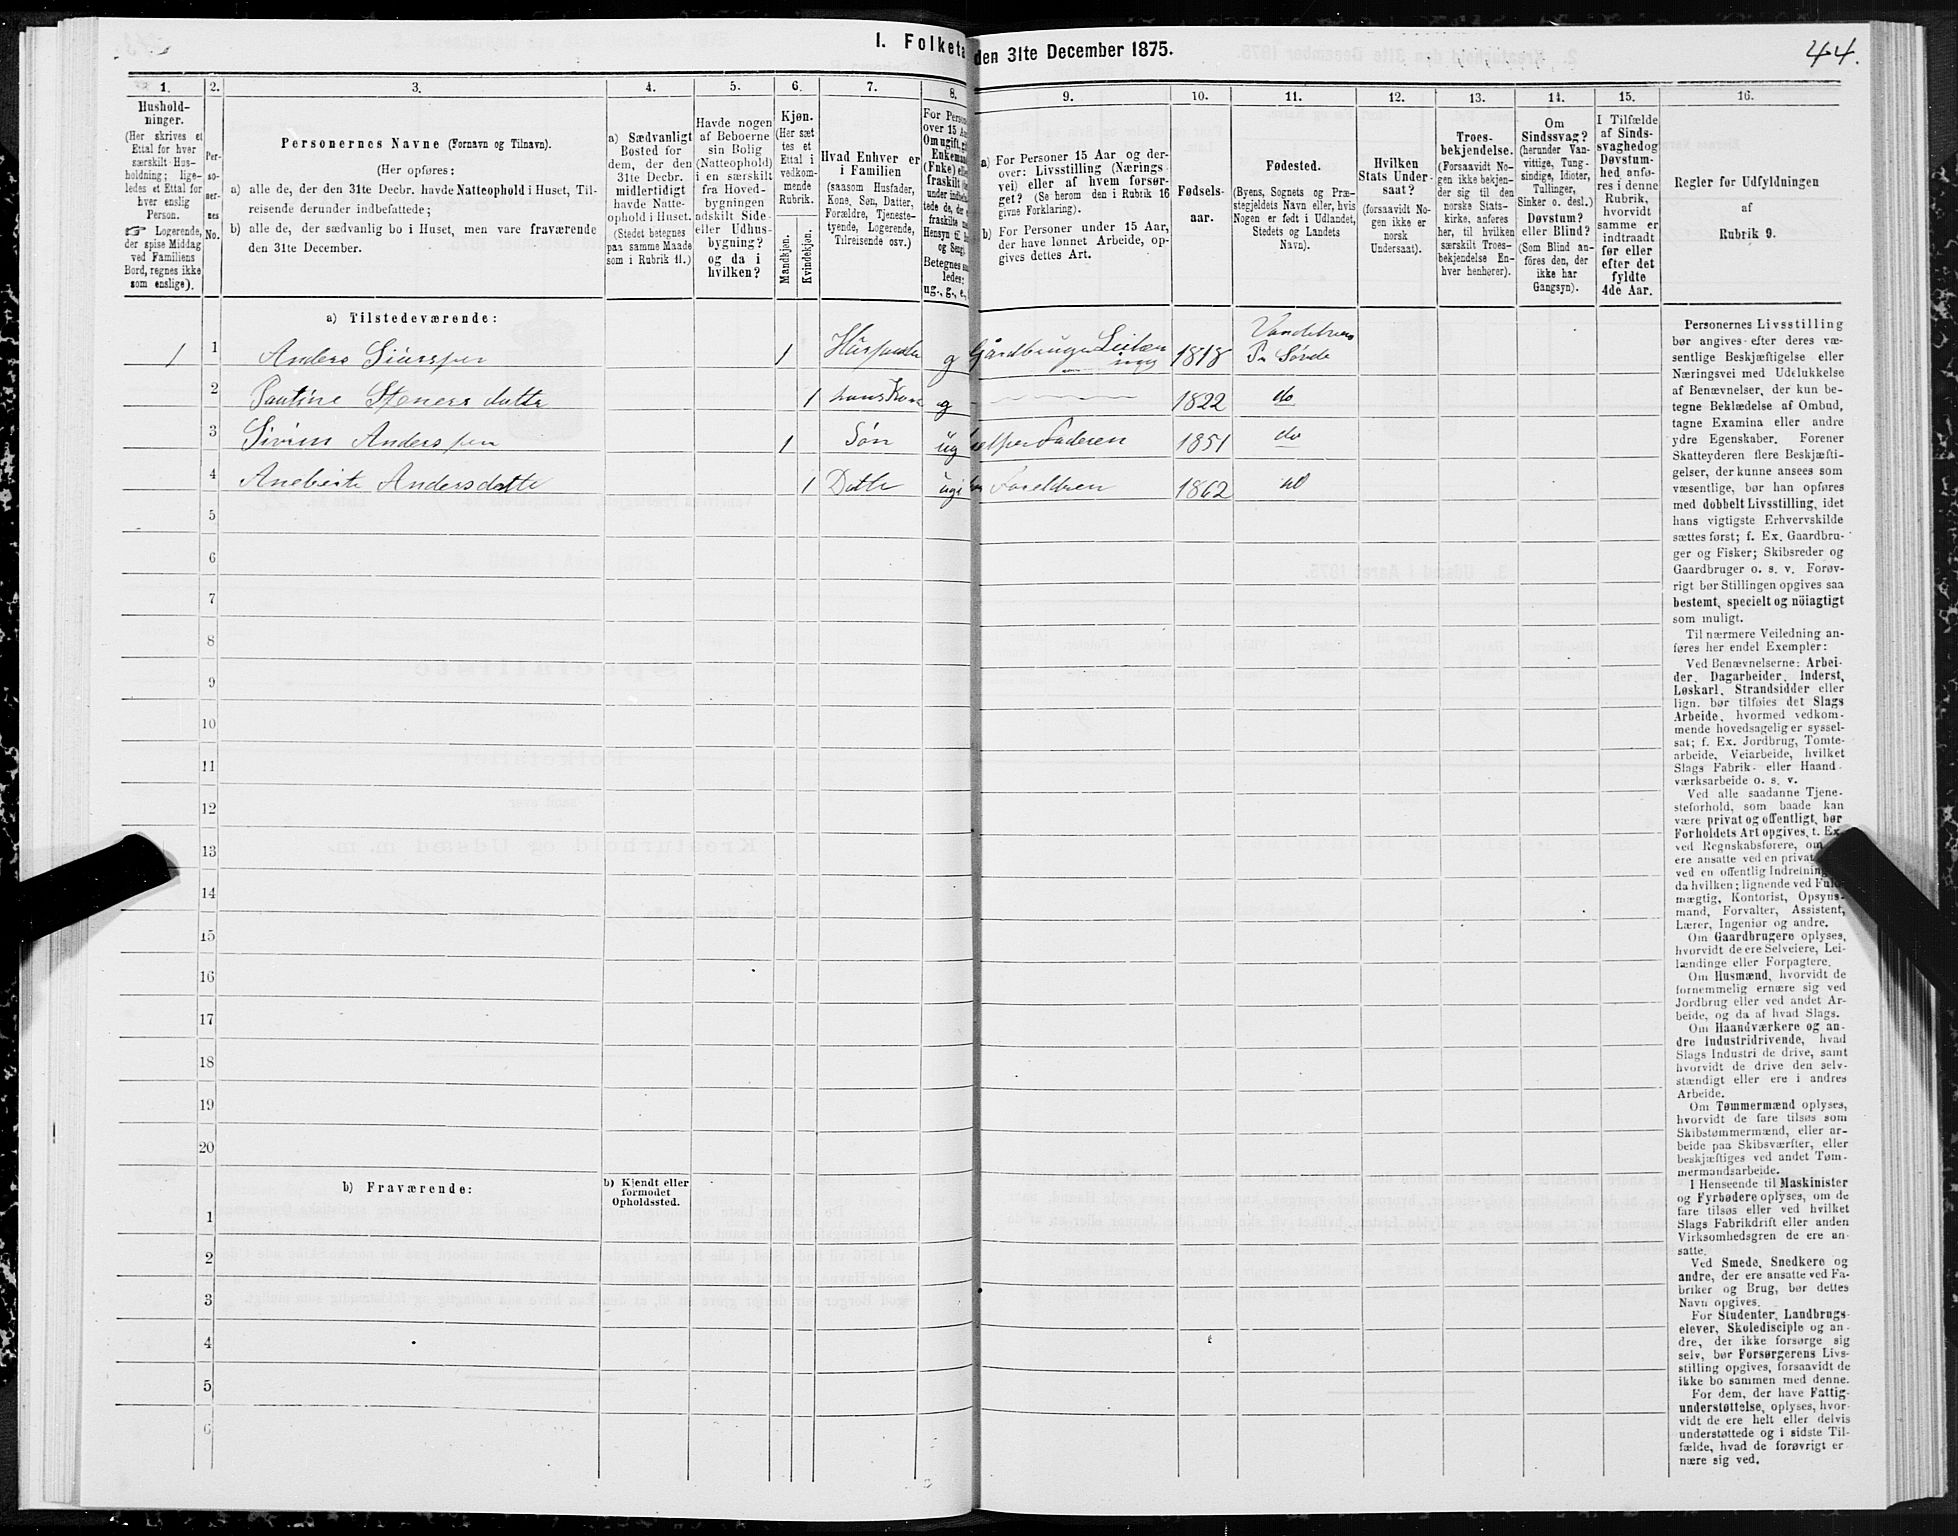 I. Folketæ
den 31te December 1875.
44.
1.
2.
3.
4.
5.
6.
7.
8.
9.
10.
11.
12.
13.
14.
15.
16.
Hushold-
ninger.
(Her skrives et
Ettal for hver
særskilt Hus-
holdning; lige-
ledes et Ettal for
hver enslig
Person.
☞ Logerende,
der spise Middag
ved Familiens
Bord, regnes ikke
som enslige).
Per-
so-
ner-
nes
No.
Personernes Navne (Fornavn og Tilnavn).
(Her opføres:
a) alle de, der den 31te Decbr. havde Natteophold i Huset, Til-
reisende derunder indbefattede;
b) alle de, der sædvanlig bo i Huset, men vare fraværende
den 31te December.
a) Sædvanligt
Bosted for
dem, der den
31te Decbr.
midlertidigt
havde Natte-
ophold i Huset.
(Stedet betegnes
paa samme Maade
som i Rubrik 11.)
Havde nogen
af Beboerne
sin Bolig
(Natteophold)
i en særskilt
fra Hoved-
bygningen
adskilt Side-
eller Udhus-
bygning?
og da i
hvilken?
Kjøn.
(Her sæt
tes et
Ettal i
vedkom-
mende
Rubrik.
Mandkjøn.
Kvindekjøn.
Hvad Enhver er
i Familien
(saasom Husfader,
Kone, Søn, Datter,
Forældre, Tjeneste-
tyende, Logerende,
Tilreisende osv.)
For Person
over 15 Aa
Om ugift, gi
Enkeman
(Enke) elle
fraskilt
under indbe
tede de, der
fraskilte
Hensyn til
og Seng
Betegnes
ledes:
ug., g., e.,
a) For Personer 15 Aar og der-
over: Livsstilling (Nærings
vei) eller af hvem forsør-
get? (Se herom den i Rubrik 16
givne Forklaring).
b) For Personer under 15 Aar,
der have lønnet Arbeide, op-
gives dettes Art.
Fødsels-
aar.
Fødested.
(Byens, Sognets og Præ-
stegjeldets Navn eller, hvis
Nogen er født i Udlandet,
Stedets og Landets
Navn).
Hvilken
Stats Under-
saat?
(forsaavidt No-
gen ikke er
norsk
Undersaat).
Troes-
bekjendelse.
(Forsaavidt No-
gen ikke bekjen-
der sig til den
norske Stats-
kirke, anføres
her, til hvilken
særskilt Troes-
bekjendelse En-
hver henhører).
Om
Sindssvag?
(herunder Van-
vittige, Tung-
sindige, Idioter,
Tullinger,
Sinker o. desl.)
Døvstum?
eller Blind?
(Som Blind an-
føres den, der
ikke har
Gangsyn).
I Tilfælde
af Sinds-
svaghedog
Døvstum-
hed anfø-
res i denne
Rubrik,
hvorvidt
samme er
indtraadt
før eller
efter det
fyldte
4de Aar.
Regler før Udfyldningen
af
Rubrik 9.
a) Tilstedeværende:
1 1 Anders 1 g Gårdbruger 1818
2 Stenersdatter 1 hans Kone g 1822 do
3 Anderssen 1 Søn ug Faderen 1851 do
4 Andersdatte 1 1862
5
6
7
8
9
10
11
12
13
14
15
16
17
18
19
20
b) Fraværende:
b) Kjendt eller
formodet
Opholdssted.
1
2
3
4
5
6
Personernes Livsstilling
bør angives efter deres væ-
sentlige Beskjæftigelse eller
Næringsvei med Udelukkelse
af Benævnelser, der kun be-
tegne Beklædelse af Ombud,
tagne Examina eller andre
ydre Egenskaber. Forener
Skatteyderen flere Beskjæfti-
gelser, der kunne ansees som
væsentlige, bør han opføres
med dobbelt Livsstilling, idet
hans vigtigste Erhvervskilde
sættes først; f. Ex. Gaardbru-
ger og Fisker; Skibsreder og
Gaardbruger o. s. v. Forøv-
rigt bør Stillingen opgives saa
bestemt, specielt og nöiagtigt
som muligt.
Til nærmere Veiledning an-
føres her endel Exempler:
Ved Benævnelserne: Arbei-
der, Dagarbeider, Inderst,
Løskarl, Strandsidder eller
lign. bør tilføies det Slags
Arbeide, hvormed vedkom-
mende hovedsagelig er syssel-
sat; f. Ex. Jordbrug, Tomte-
arbeide, Veiarbeide, hvilket
Slags Fabrik- eller Haand-
værksarbeide o. s. v.
Ved alle saadanne Tjene-
steforhold, som baade kan
være privat og offentligt, bør
Forholdets Art opgives, t. Ex.
ved Regnskabsførere, om
ere ansatte ved en privat
ved en offentlig Indretning
da hvilken; lignende ved Fuld-
mægtig, Kontorist, Opsyns-
mand, Forvalter, Assistent,
Lærer, Ingeniør og andre.
Om Gaardbrugere oplyses,
hvorvidt de ere Selveiere, Lei-
lændinge eller Forpagtere.
Om Husmænd, hvorvidt de
fornemmelig ernære sig ved
Jordbrug eller ved andet Ar-
beide, og da af hvad Slags.
Om Haandværkere og an-
dre Industridrivende, hvad
Slags Industri de drive, samt
hvorvidt de drive den selv-
stændigt eller ere i andres
Arbeide.
Om Tømmermænd oplyses,
hvorvidt de fare tilsøs som
Skibstømmermænd, eller ar-
beide paa Skibsværfter, eller
beskjæftiges ved andet Tøm-
mermandsarbeide.
I Henseende til Maskinister
og Fyrbødere oplyses, om de
fare tilsøs eller ved hvilket
Slags Fabrikdrift eller anden
Virksomhedsgren de ere an-
satte.
Ved Smede, Snedkere og
andre, der ere ansatte ved Fa-
briker og Brug, bør dettes
Navn opgives.
For Studenter, Landbrugs-
elever, Skoledisciple og an-
dre, der ikke forsørge sig
selv, bør Forsørgerens Livs-
stilling opgives, forsaavidt de
ikke bo sammen med denne.
For dem, der have Fattig-
understøttelse, oplyses, hvor-
vidt de ere helt eller delvis
understøttede og i sidste Til-
fælde, hvad de forøvrigt er-
nære sig ved.